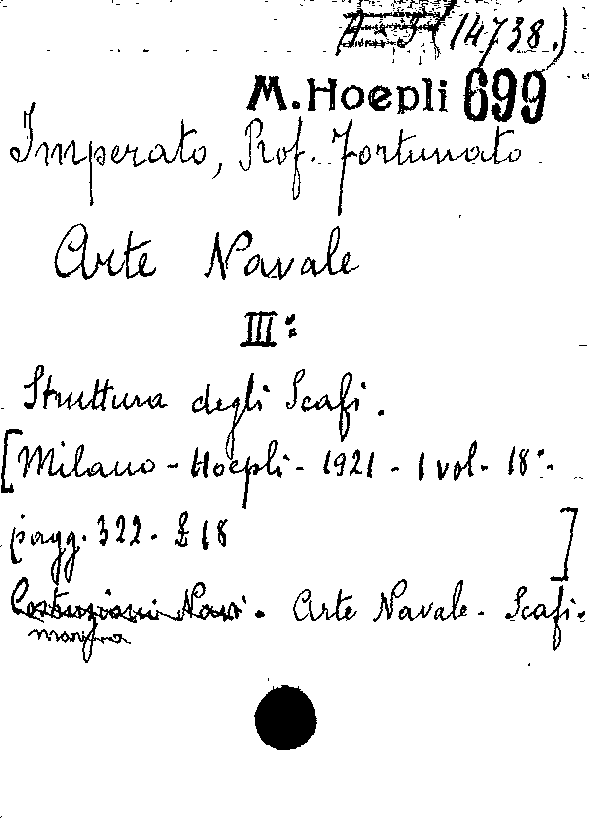 (14738.)
M. Hoepli 699
Imperato, Prof. Fortunato
Arte Navale
III°:
Struttura degli Scafi.
[Milano - Hoepli - 1921 - 1 vol. 18°.
pagg. 322. £ 18 ]
Costruzioni Navi. Arte Navale - Scafi.